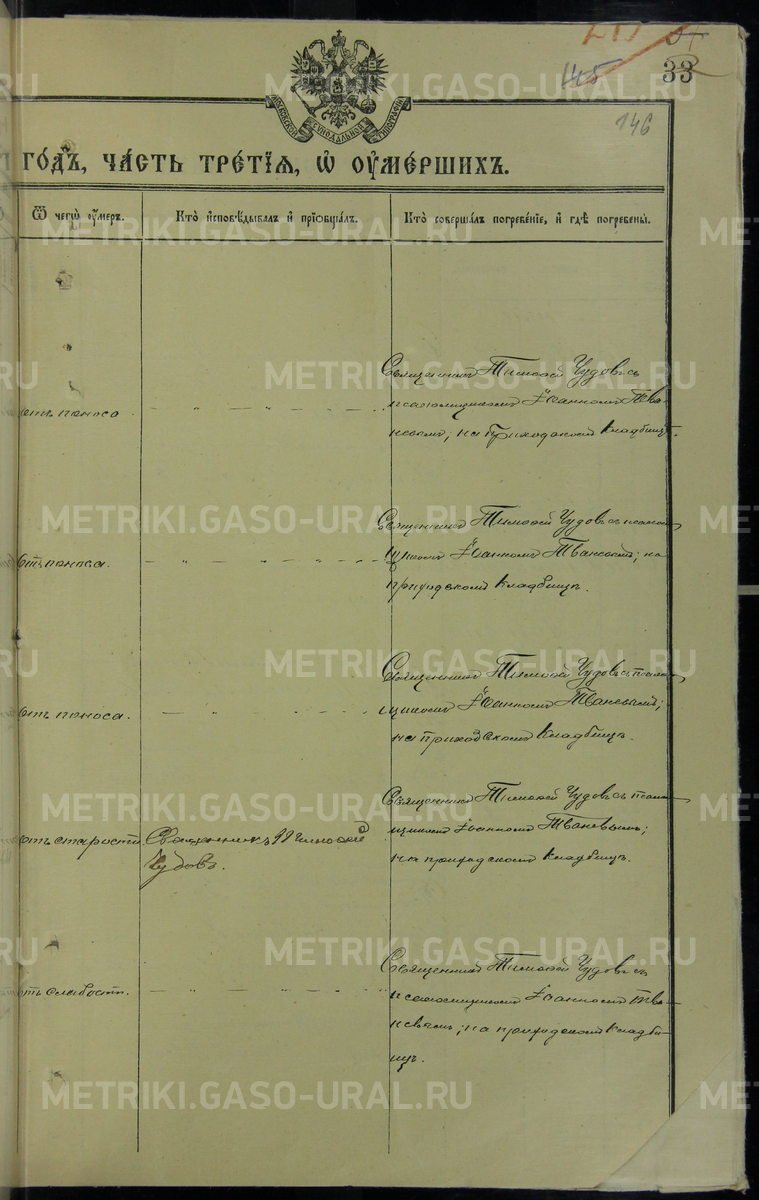 145
33
146
МОСКОВСКОЙ СѴНОДАЛЬНОЙ ТИПОГРАФІИ
ГОДЪ, ЧАСТЬ ТРЕТІЯ, Ѡ ОУМЕРШИХЪ.
Ѿ чегѡ оумеръ.
Кто исповѣдывалъ и пріобщалъ.
Кто совершалъ погребеніе, и гдѣ погребены.
отъ поноса
Священникъ Тимоѳей Чудовъ съ
псаломщикомъ Іоанномъ
на приходскомъ кладбищѣ.
Отъ поноса.
Священникъ Тимоѳей Чудовъ съ псалом
щикомъ Іоанномъ на
приходскомъ кладбищѣ.
отъ поноса.
Священникъ Тимоѳей Чудовъ съ псалом
щикомъ Іоанномъ
на приходскомъ кладбищѣ.
отъ старости
Священникъ Тимоѳей
Чудовъ.
Священникъ Тимоѳей Чудовъ съ псалом
щикомъ Іоанномъ
на приходскомъ кладбищѣ.
отъ слабости.
Священникъ Тимоѳей Чудовъ съ
псаломщикомъ Іоанномъ
на приходскомъ кладби
щѣ.
METRIKI.GASO-URAL.RU